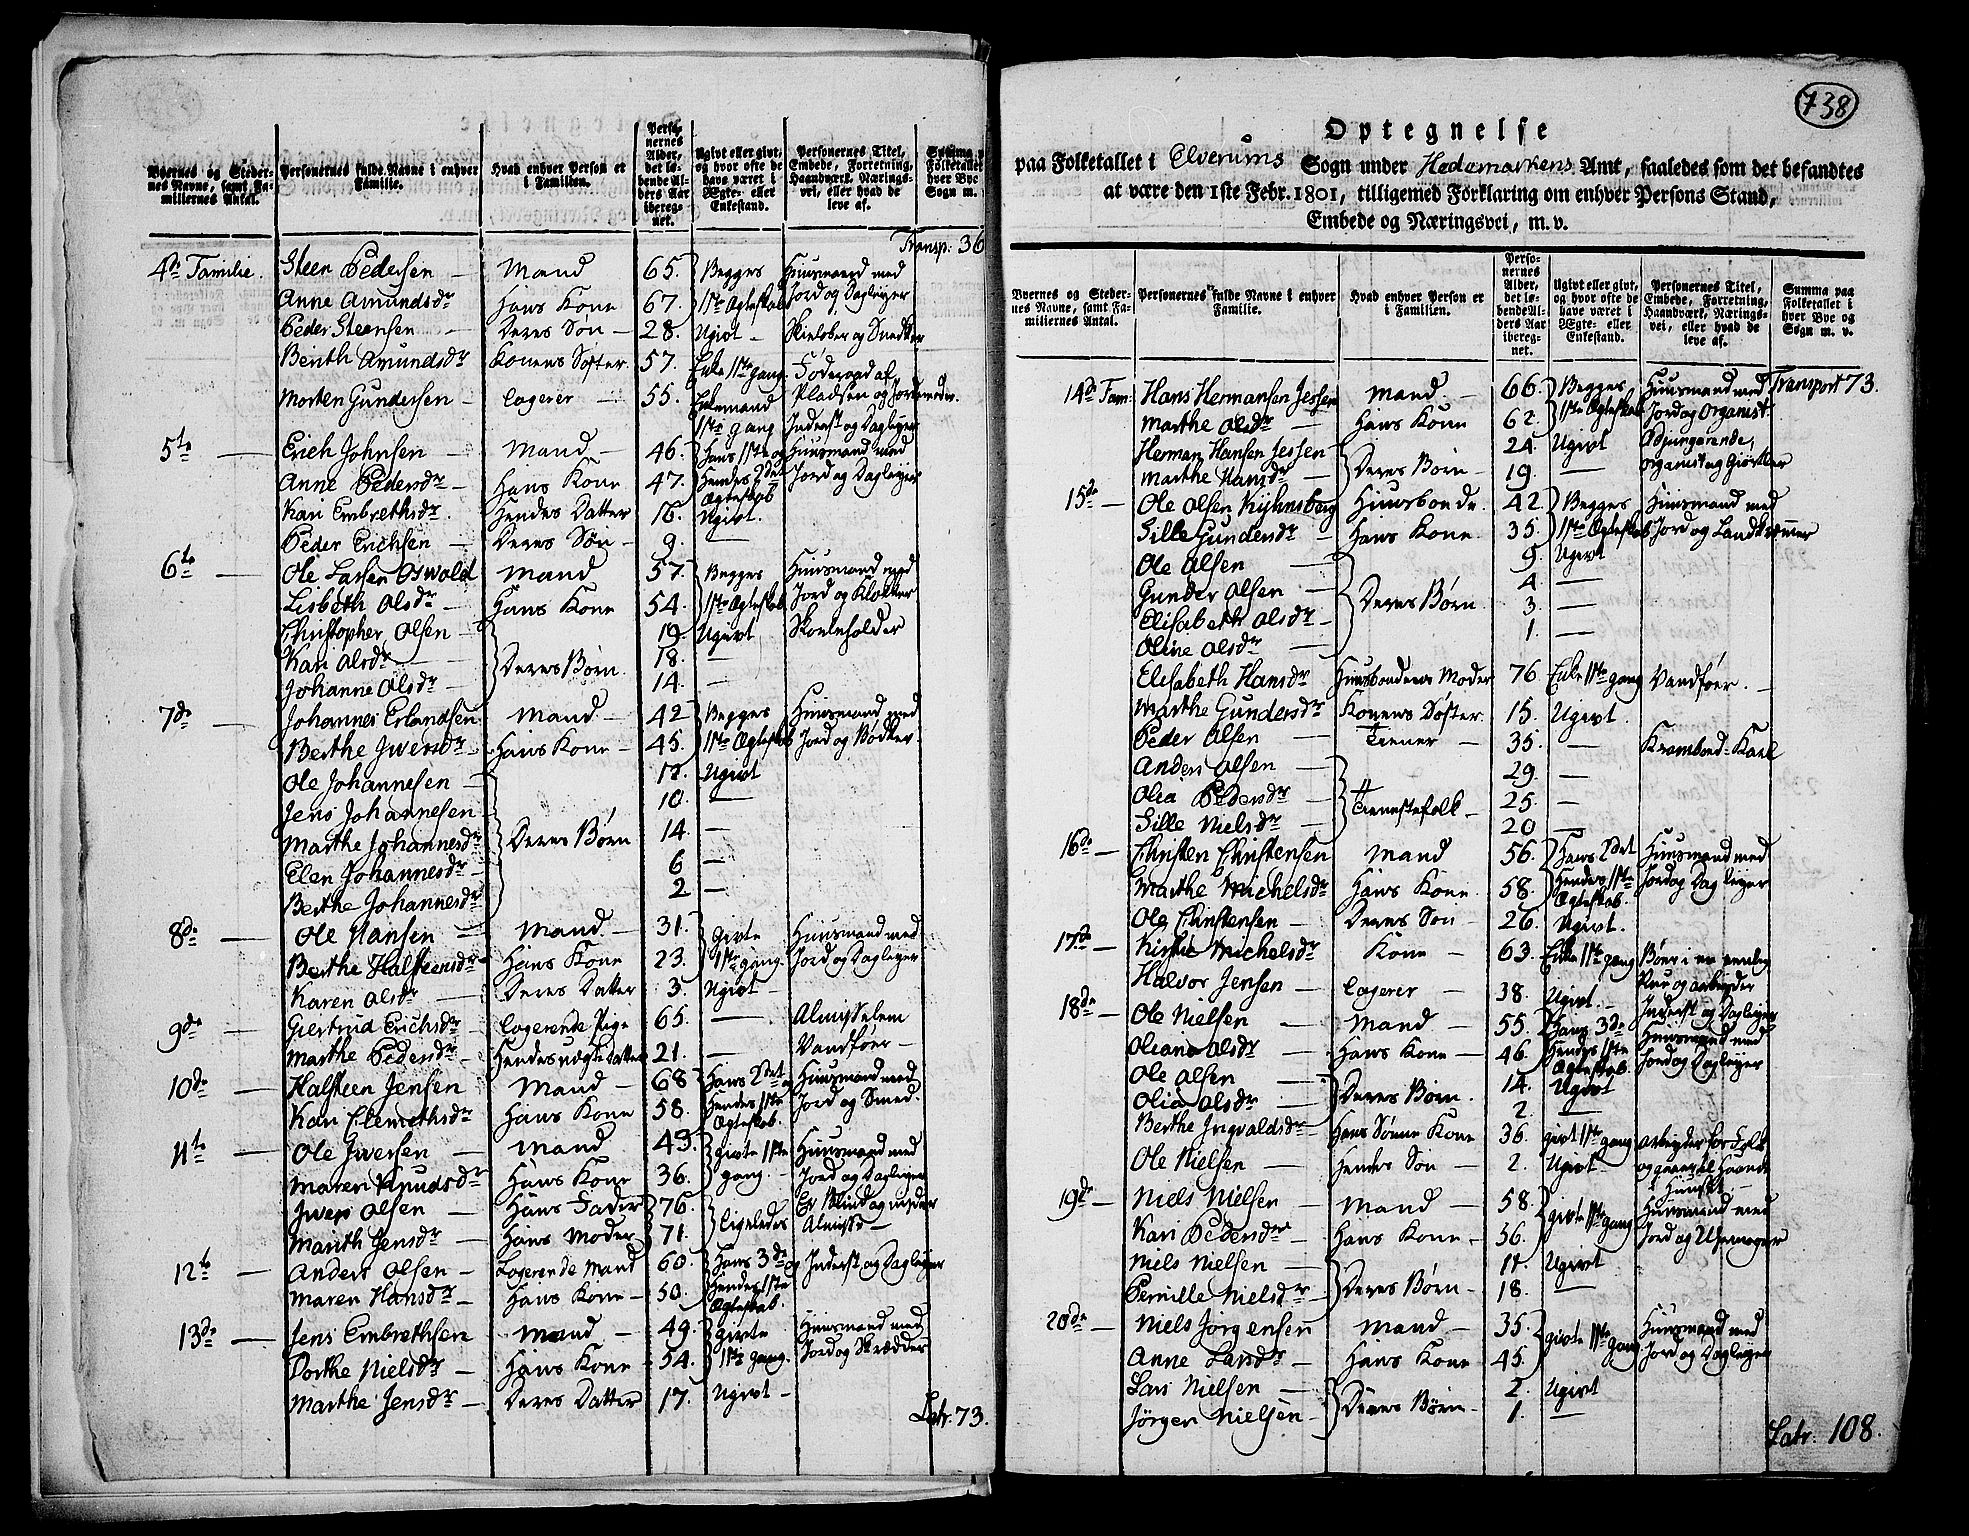 Byernes og Stedernes Navne, samt Familiernes Antal. | Personernes fulde Navne i enhver Familie. | Hvad enhver Person er i Familien. | Personernes Alder, det løbende Alders Aar iberegnet. | Ugivt eller givt, og hvor ofte de have været i Ægte- eller Enkestand. | Personernes Titel, Embede, Forretning, Haandværk, Næringsvei, eller hvad de leve af. | Summa Folketallet hver Bye Sogn m.
Transp: 36
4de Familie. Steen Pedersen — Mand 65. Begges Huusmand med
Anne Amundsdr Hans Kone 67. 1ste Ægteskab Jord og Dagleyer
Peder Steensen — Deres Søn — 28. Ugivt — Skieløber og Snedker
Berith Amundsdr Konens Søster 57. Enke 1ste gang Føderaad af
Morten Gundersen — Logerer — 55. Enkemand Pladsen og Jordemoder.
1ste gang Inderst og Dagleyer
5te — Erich Johnsen Mand — 46. Hans 1ste og Huusmand med
Anne Pedersdr — Hans Kone 47. Hendes 2det Jord og Dagleyer
Ægteskab
Kari Embrethsdr. Hendes Datter 16. Ugivt.
Peder Erichsen — Deres Søn — 9. —
6te — Ole Larsen Oswold Mand 57. Begges Huusmand med
Lisbeth Olsdr — Hans Kone 54. 1ste Ægteskab Jord og Klokker
Christopher Olsen — 19. Ugivt Skoleholder
Kari Olsdr — Deres Børn. 18. —
Johanne Olsdr — 14. —
7de — Johannes Erlandsen Mand — 42 Begges Huusmand med
Berthe Iwersdr — Hans Kone — 45. 1ste Ægteskab Jord og Bødker.
Ole Johannesen — 17. Ugivt
Jens Johannesen — 10. —
Marthe Johannesdr Deres Børn 14 —
Elen Johannesdr — 6 —
Berthe Johannesdr 2 —
8de — Ole Hansen — Mand — 31. givte Huusmand med
Berthe Halsteensdr Hans Kone 23. 1ste gang Jord og Dagleyer
Karen Olsdr — Deres Datter 3. Ugivt —
9de — Giertrud Erichsdr — Logerende Pige 65. — Almisselem
Marthe Pedersdr — Hendes uægte datter 21. — Vandføer —
10de — Halsteen Jensen Mand — 68 Hans 2det og Huusmand med
Kari Clemethsdr Hans Kone 58. Hendes 1ste Jord og Smed.
Ægteskab.
11te — Ole Iwersen — Mand 43. givte 1ste Huusmand med
Maren Knudsdr Hans Kone 36. gang — Jord og Dagleyer
Iwer Olsen — Hans Fader 76. Er blind og nyder
Marith Jensdr — Hans Moder 71. Ligeledes Almisse —
12te — Anders Olsen — Logerende Mand 60. Hans 3de og Inderst og Dagleyer
Maren Hansdr — Hans Kone — 50. Hendes 1ste
Ægteskab.
13de — Jens Embrethsen Mand — 49. givte Huusmand med
Dorthe Nielsdr — Hans Kone — 54. 1ste gang. Jord og Skrædder
Marthe Jensdr — Deres Datter 17. Ugivt —
Latr. 73.
738
Optegnelse
paa Folketallet i Elverums Sogn under Hedemarkens Amt, saaledes som det befandtes
at være den 1ste Febr. 1801, tilligemed Forklaring om enhver Persons Stand,
Embede og Næringsvei, m. v.
Byernes og Stedernes Navne, samt Familiernes Antal. | Personernes fulde Navne i enhver Familie. | Hvad enhver Person er i Familien. | Personernes Alder, det løbende Alders Aar iberegnet. | Ugivt eller givt, og hvor ofte de have været i Ægte- eller Enkestand. | Personernes Titel, Embede, Forretning, Haandværk, Næringsvei, eller hvad de leve af. | Summa paa Folketallet i hver Bye og Sogn m. v.
14de Fam: Hans Hermansen Jessen Mand. — 66. Begges Huusmand med Transport 73.
Marthe Olsdr — Hans Kone 62. 1ste Ægteskab Jord og Organist
Herman Hansen Jessen 24. Ugivt Adjungerende
Marthe Hansdr Deres Børn — 19. — Organist og Giørtler
15de — Ole Olsen Kyhnsberg Huusbonde. 42. Begges Huusmand med
Sille Gundersdr — Hans Kone 35. 1ste Ægteskab Jord og Landkræmmer
Ole Olsen — 9. Ugivt
Gunder Olsen — Deres Børn 4. —
Elisabeth Olsdr — 3. —
Oline Olsdr — 1. —
Elisabeth Hansdr Huusbondens Moder 76. Enke 1ste gang Vandføer. —
Marthe Gundersdr Konens Søster. 15. Ugivt.
Peder Olsen — Tiener — 35. — Krambod-Karl
Anders Olsen — 29. —
Olia Pedersdr — Tienestefolk — 25. —
Sille Nielsdr — 20 —
16de — Christen Christensen Mand 56. Hans 2det Huusmand med
Marthe Michelsdr Hans Kone. 58. Hendes 1ste Jord og Dagleyer
Ægteskab.
Ole Christensen — Deres Søn — 26. Ugivt.
17de — Kirstie Michelsdr Kone — 63. Enke 1ste gang Boer i en
Halvor Jensen — Logerer — 38. Ugivt. — og arbeyder
Inderst og Dagleyer
18de — Ole Nielsen — Mand — 55. Hans 3de Huusmand med
Oliana Olsdr — Hans Kone — 46. Hendes 1ste Jord og Dagleyer
Ægteskab.
Ole Olsen — 14. Ugivt
Olia Olsdr — Deres Børn. 2. —
Berthe Ingvaldsdr — Hans Sønne Kone 36. givt 1ste gang arbeyder for Folk
Ole Nielsen — Hendes Søn — 2. Ugivt og gaaer til Haande
i Huuset —
19de — Niels Nielsen — Mand — 58. Huusmand med
Kari Pedersdr — Hans Kone — 56. givte 1ste gang Jord og Uhrmager
Niels Nielsen — 17. Ugivt
Pernille Nielsdr — Deres Børn — 18. —
20de — Niels Jørgensen Mand — 35. Huusmand med
Anne Larsdr — Hans Kone 45. givte 1ste gang Jord og Dagleyer
Lars Nielsen — 2. Ugivt
Jørgen Nielsen — Deres Børn — 1. —
Latr. 108.